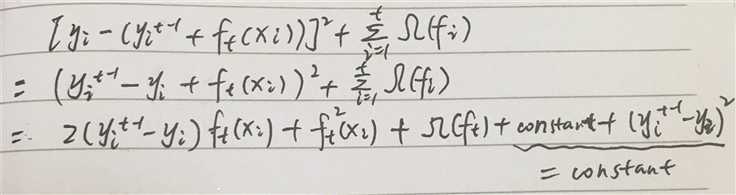 [y_i − (y_i^{t-1} + f_t(x_i))]² + Σ_{i=1}^{t} Ω(f_i)
= (y_i^{t-1} − y_i + f_t(x_i))² + Σ_{i=1}^{t} Ω(f_i)
= 2(y_i^{t-1} − y_i) f_t(x_i) + f_t²(x_i) + Ω(f_t) + constant + (y_i^{t-1} − y_i)²
= constant